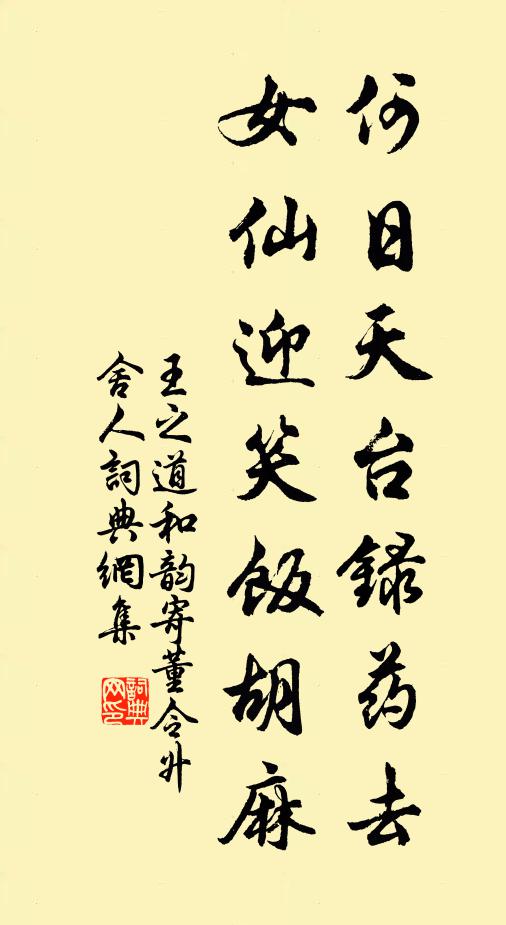 何日天台録药去
女仙迎笑飯胡麻
王之道和韵寄董令升
舍人詞典網集
詞典網印